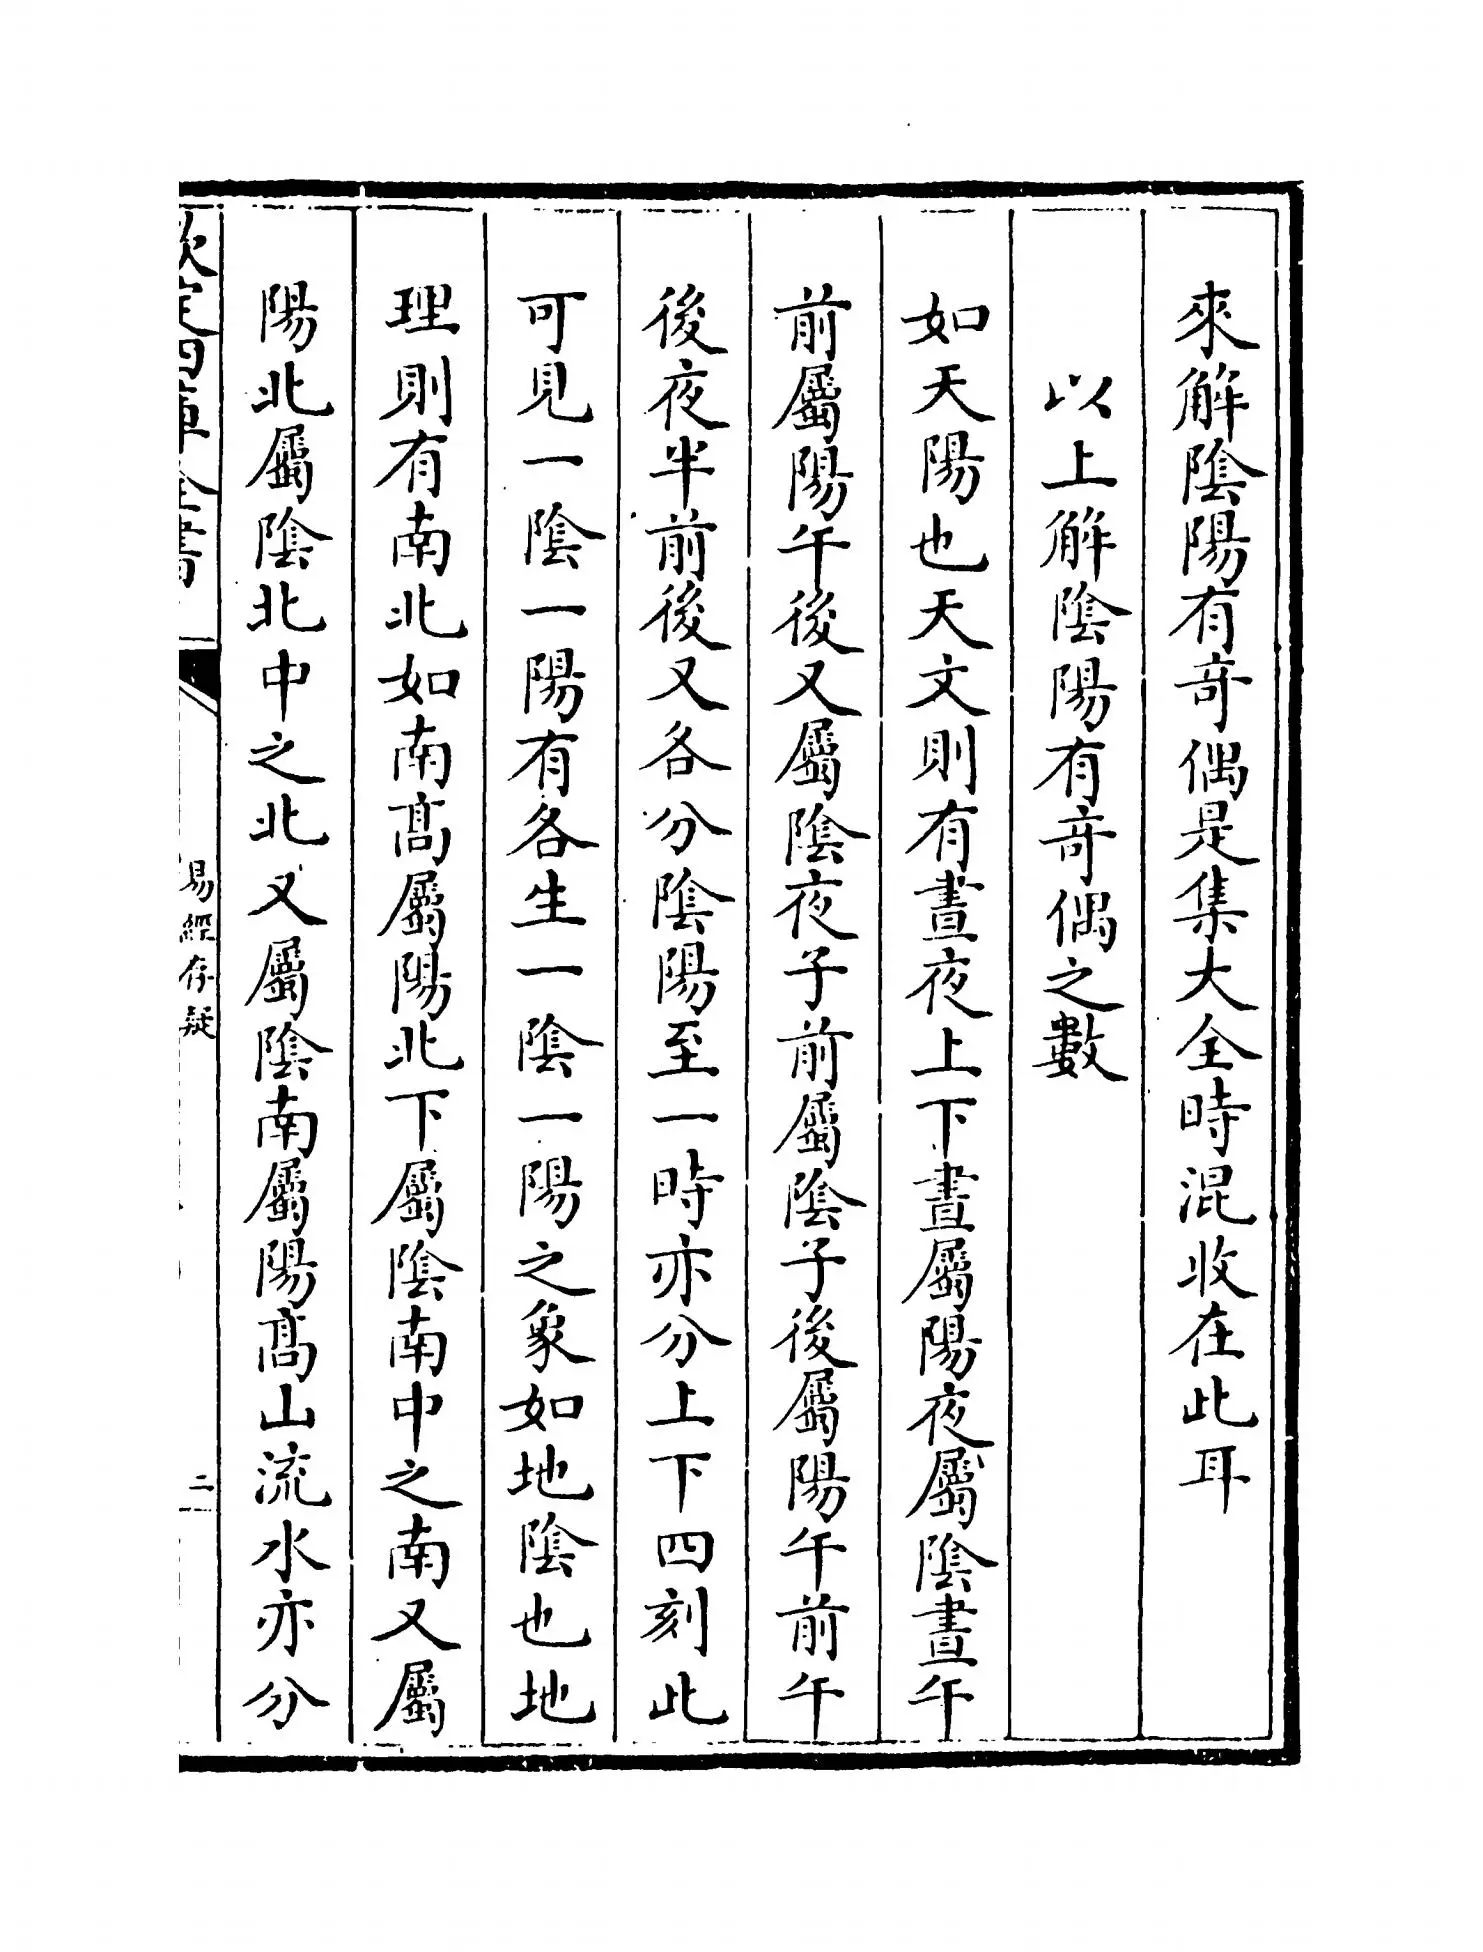 來解陰陽有竒偶是集大全時混收在此耳
以上解陰陽有竒偶之數
如天陽也天文則有晝夜上下晝屬陽夜屬陰晝午
前屬陽午後又屬陰夜子前屬陰子後屬陽午前午
後夜半前後又各分陰陽至一時亦分上下四刻此
可見一陰一陽有各生一陰一陽之象如地陰也地
理則有南北如南髙屬陽北下屬陰南中之南又屬
陽北屬陰北中之北又屬陰南屬陽髙山流水亦分
欽定四庫全書
易經存疑
二